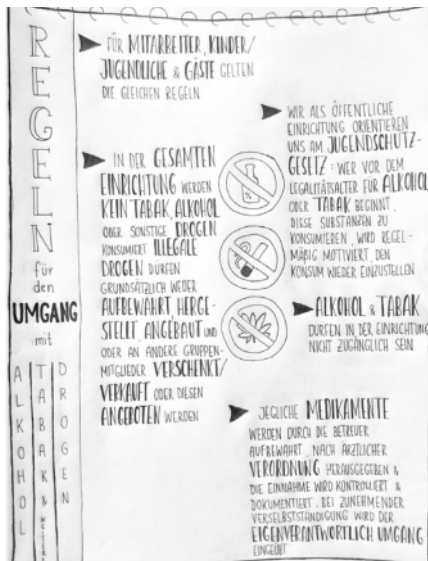 REGELN
für
den
UMGANG
mit
ALKOHOL
TABAK &
DROGEN
FÜR MITARBEITER, KINDER/
JUGENDLICHE & GÄSTE GELTEN
DIE GLEICHEN REGELN
IN DER GESAMTEN
EINRICHTUNG WERDEN
KEIN TABAK, ALKOHOL
ODER SONSTIGE DROGEN
KONSUMIERT ILLEGALE
DROGEN DÜRFEN
GRUNDSÄTZLICH WEDER
AUFBEWAHRT, HERGE-
STELLT, ANGEBAUT UND
ODER AN ANDERE GRUPPEN-
MITGLIEDER VERSCHENKT/
VERKAUFT ODER DIESEN
ANGEBOTEN WERDEN
WIR ALS ÖFFENTLICHE
EINRICHTUNG ORIENTIEREN
UNS AM JUGENDSCHUTZ-
GESETZ: WER VOR DEM
LEGALITÄTSALTER FÜR ALKOHOL
ODER TABAK BEGINNT,
DIESE SUBSTANZEN ZU
KONSUMIEREN, WIRD REGEL-
MÄßIG MOTIVIERT, DEN
KONSUM WIEDER EINZUSTELLEN
ALKOHOL & TABAK
DÜRFEN IN DER EINRICHTUNG
NICHT ZUGÄNGLICH SEIN
JEGLICHE MEDIKAMENTE
WERDEN DURCH DIE BETREUER
AUFBEWAHRT, NACH ÄRZTLICHER
VERORDNUNG HERAUSGEGEBEN &
DIE EINNAHME WIRD KONTROLLIERT &
DOKUMENTIERT. BEI ZUNEHMENDER
VERSELBSTSTÄNDIGUNG WIRD DER
EIGENVERANTWORTLICH UMGANG
EINGEÜBT